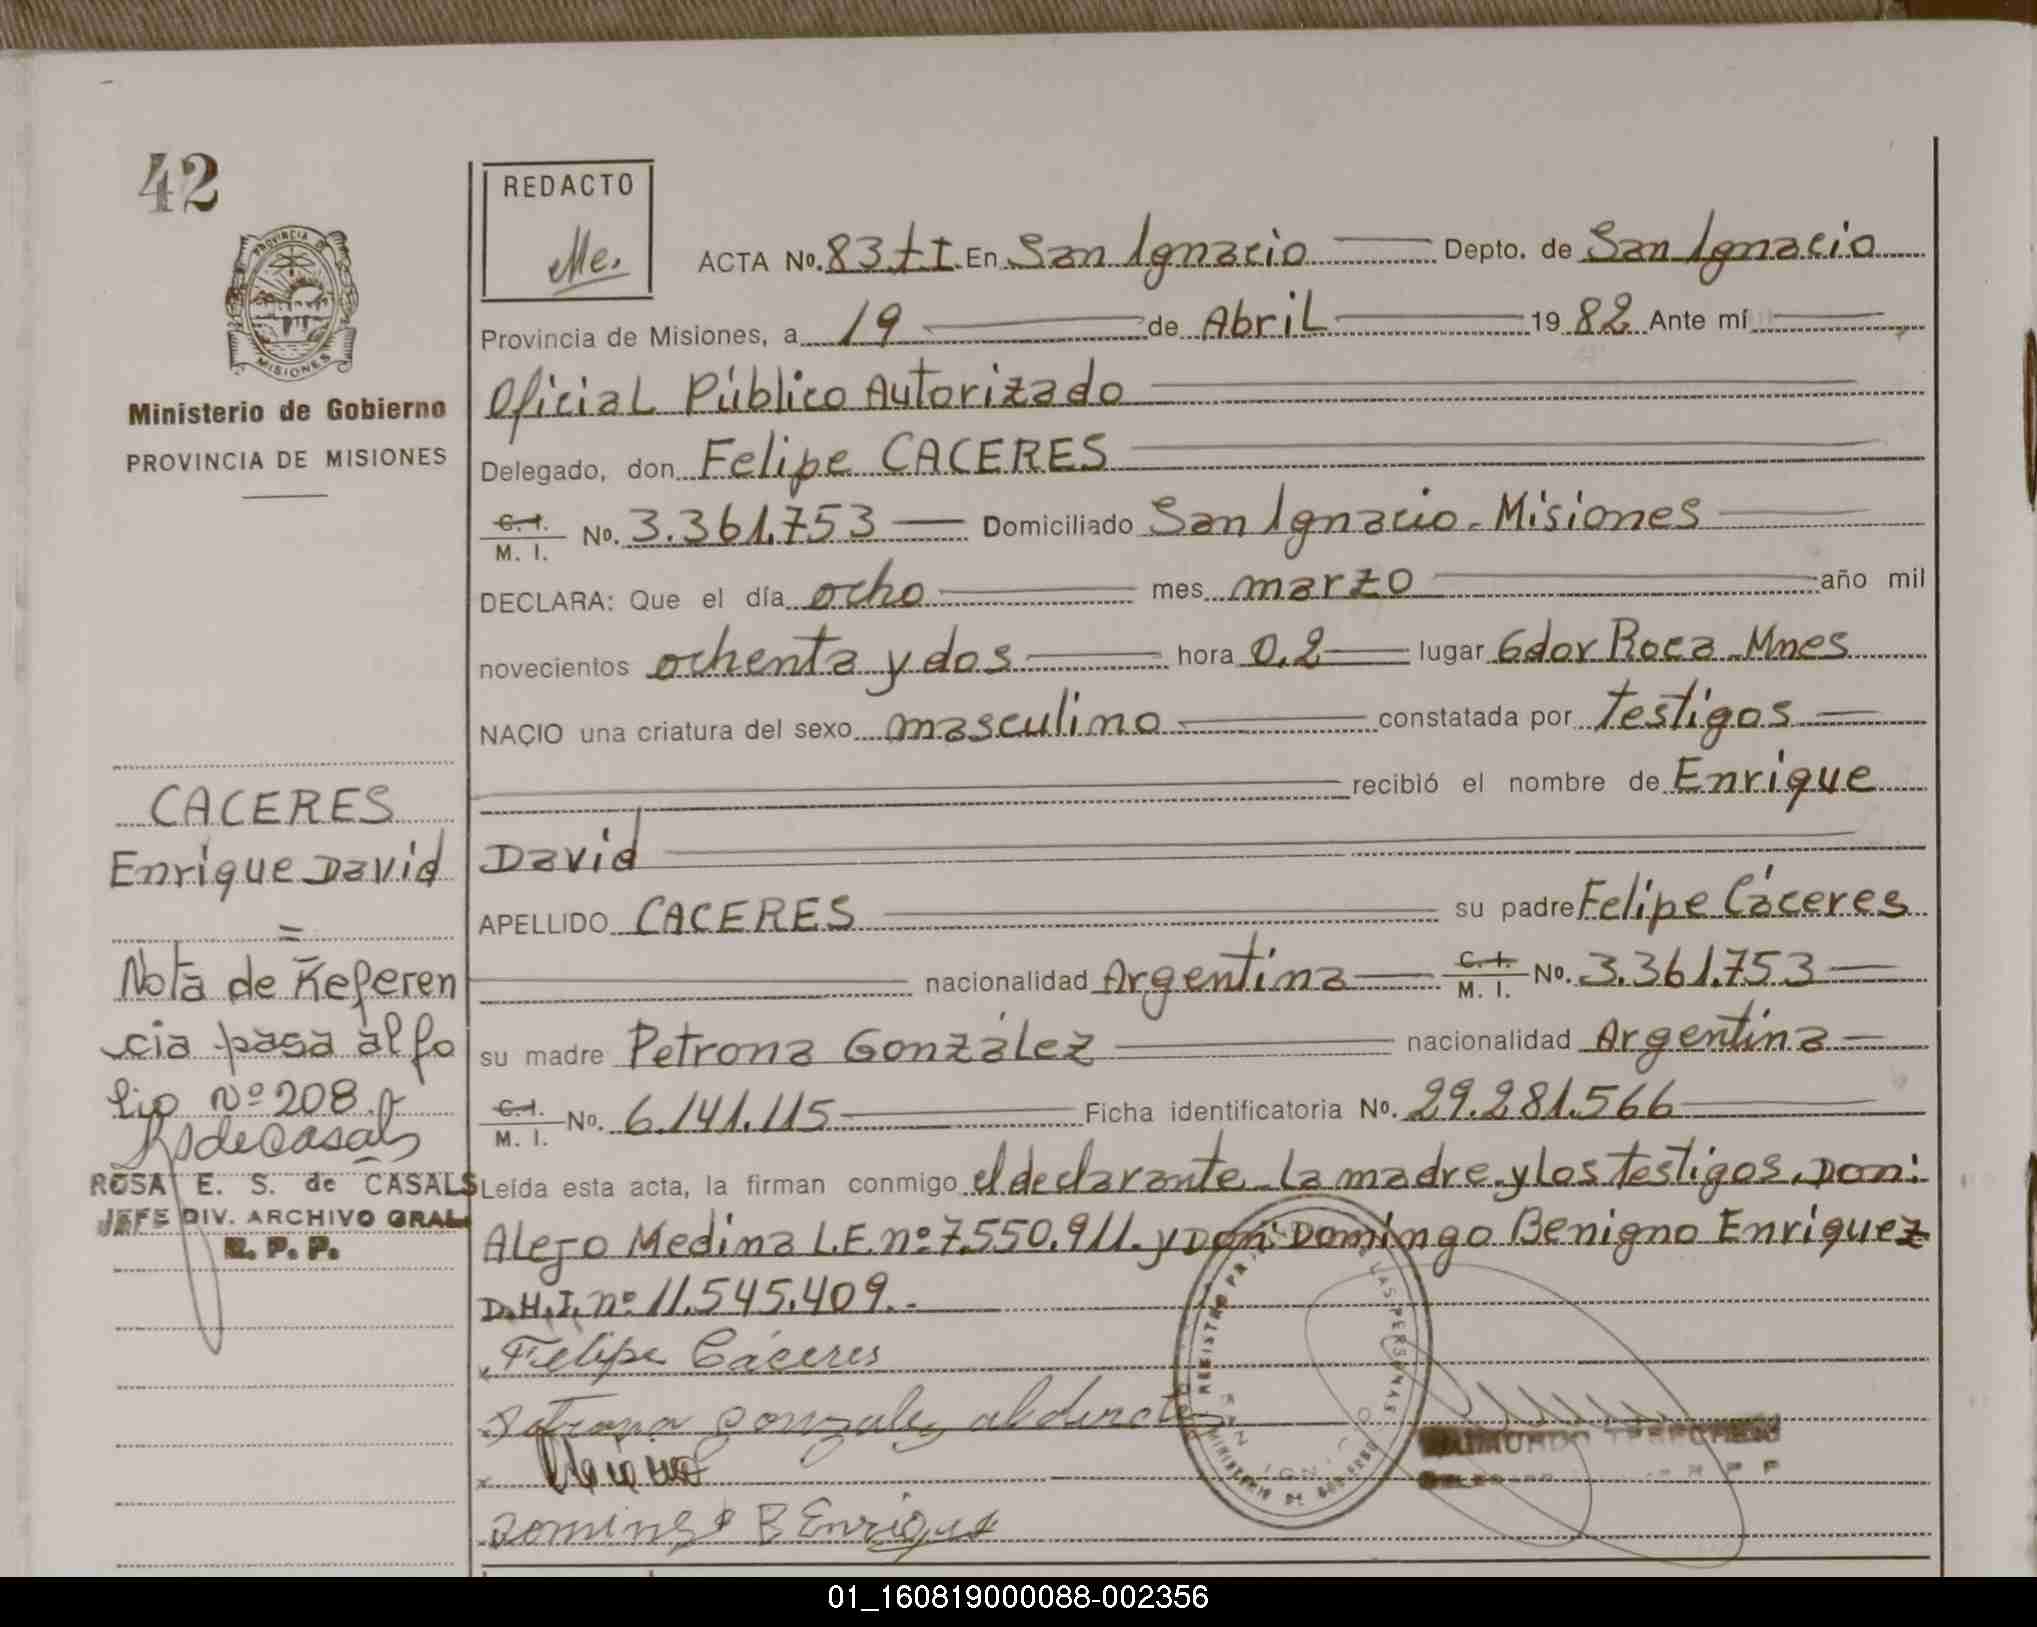 42
REDACTO
Me.
PROVINCIA DE
MISIONES
Ministerio de Gobierno
PROVINCIA DE MISIONES
ACTA No. 83 tI En San Ignacio Depto. de San Ignacio
Provincia de Misiones, a 19 de Abril 1982 Ante mí
Oficial Público Autorizado
Delegado, don Felipe CACERES
C. I. M. I. No. 3.361.753 Domiciliado San Ignacio - Misiones
DECLARA: Que el día ocho mes marzo año mil
novecientos ochenta y dos hora 0,2 lugar Gdor Roca - Mnes
NACIO una criatura del sexo masculino constatada por testigos
recibió el nombre de Enrique
David
APELLIDO CACERES su padre Felipe Cáceres
nacionalidad Argentina C. I. M. I. No. 3.361.753
su madre Petrona González nacionalidad Argentina
C. I. M. I. No. 6.141.115 Ficha identificatoria No. 29.281.566
Leída esta acta, la firman conmigo el declarante la madre y los testigos, Don:
Alejo Medina L.E. nº 7.550.911. y Don Domingo Benigno Enriquez
D.H.I. nº 11.545.409.-
Felipe Cáceres
Petrona Gonzalez
Domingo B Enrique
CACERES
Enrique David
=
Nota de Referen
cia pasa al fo
lio Nº 208.
RSdeCasals
ROSA E. S. de CASALS
JEFE DIV. ARCHIVO GRAL
R. P. P.
REGISTRO PR LAS PERSONAS
MINISTERIO DE GOBIERNO
RAIMUNDO
R P P
01_160819000088-002356